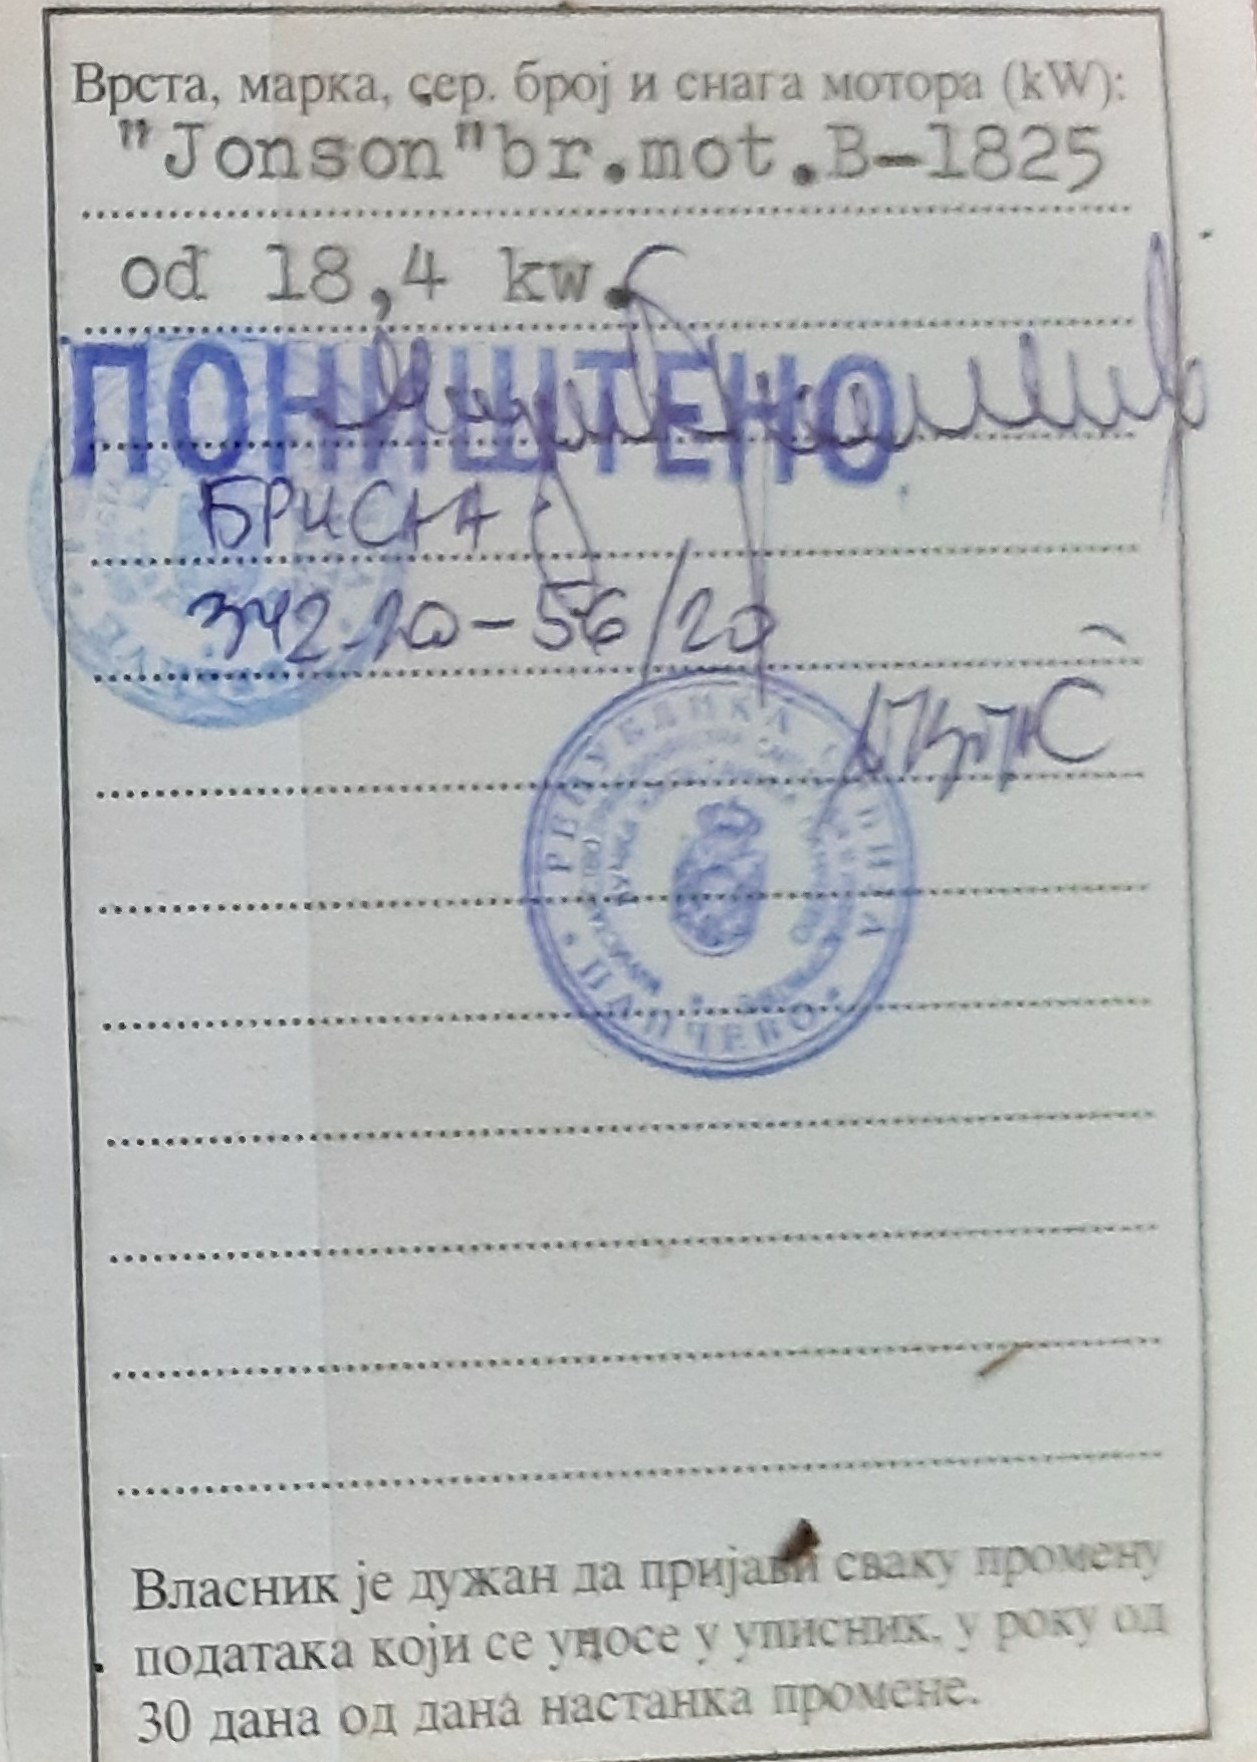 Врста, марка, сер. број и снага мотора (kW):
"Jonson"br.mot.B-1825
od 18,4 kw.
ПОНИШТЕНО
БРИСАА
342-20-56/20
РЕПУБЛИКА СРБИЈА
ПАНЧЕВО
Власник је дужан да пријави сваку промену
података који се уносе у уписник, у року од
30 дана од дана настанка промене.